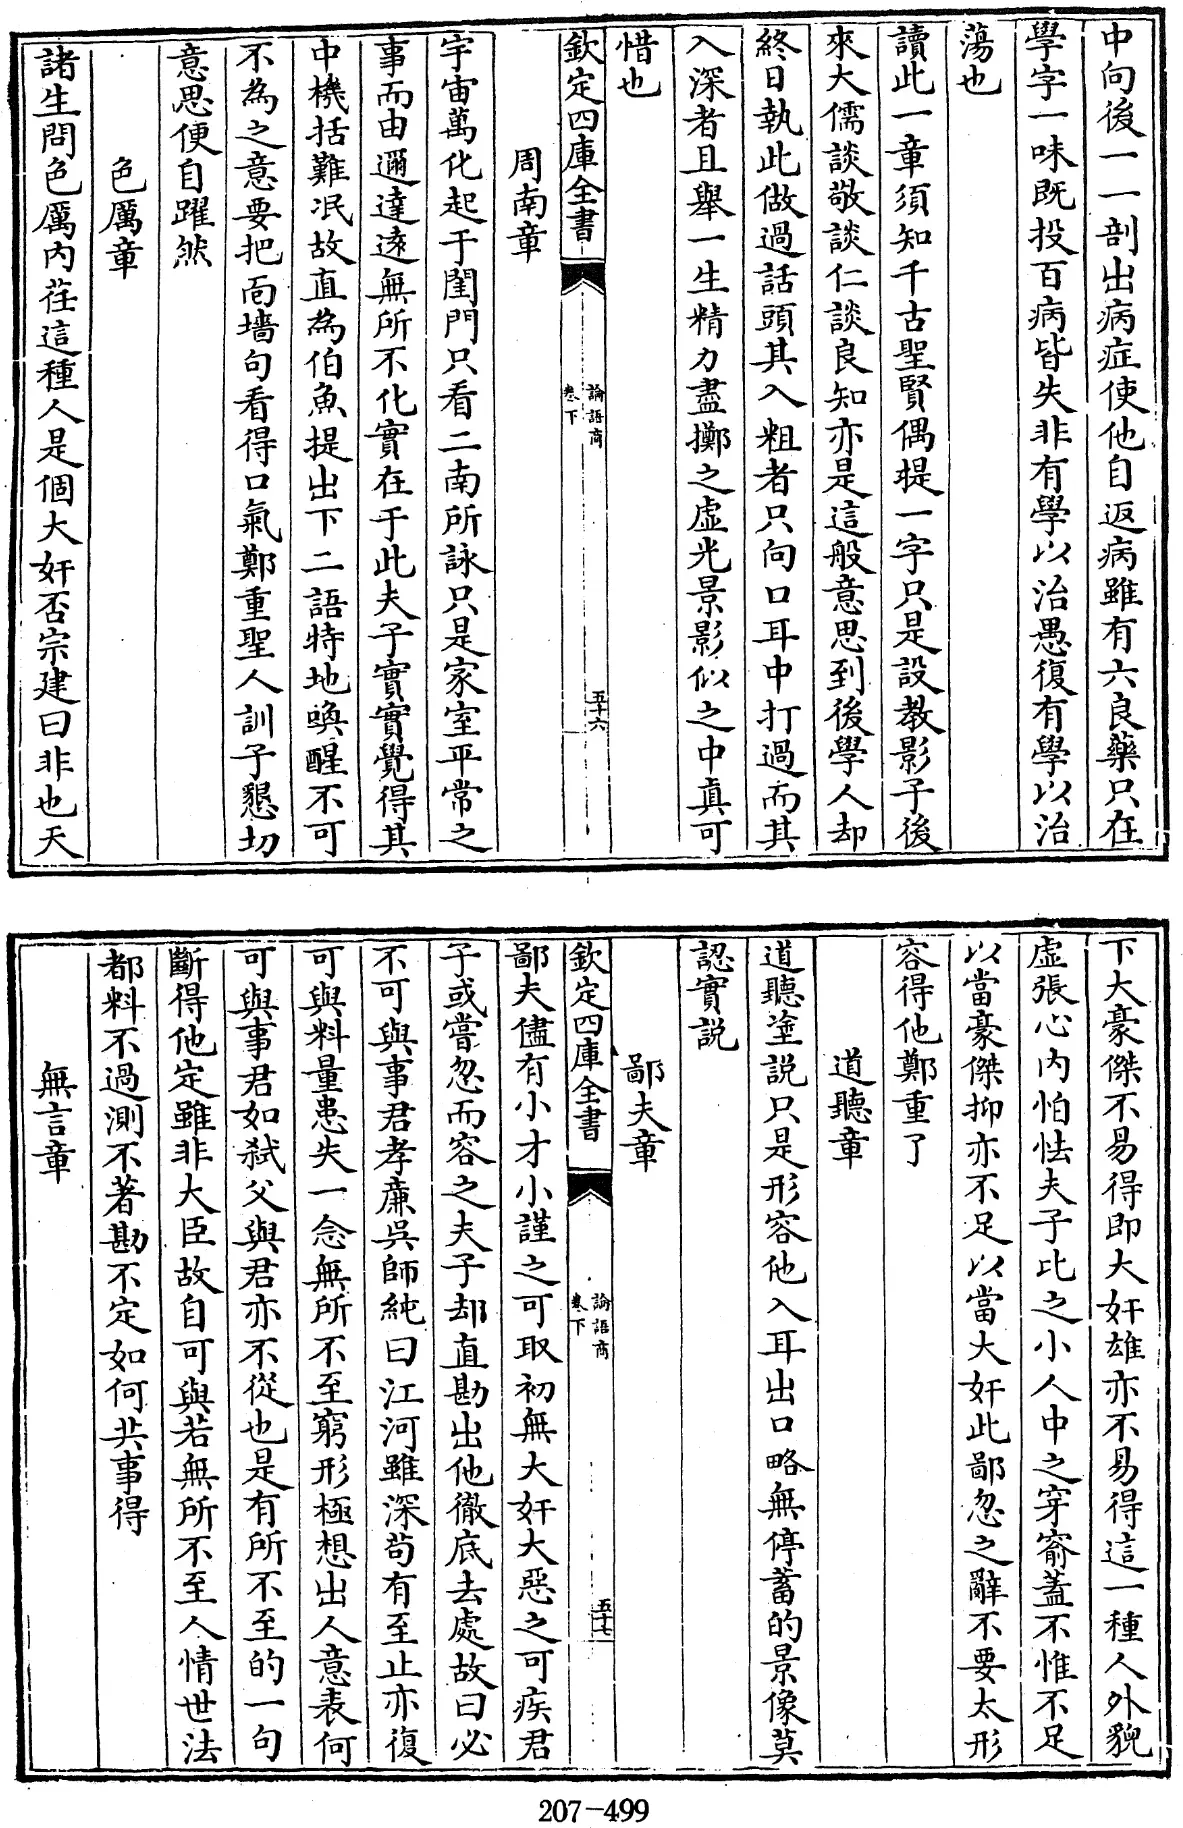 中向後一一剖出病症使他自返病雖有六良藥只在
學字一味既投百病皆失非有學以治愚復有學以治
蕩也
讀此一章須知千古聖賢偶提一字只是設教影子後
來大儒談敬談仁談良知亦是這般意思到後學人却
終日執此做過話頭其入粗者只向口耳中打過而其
入深者且舉一生精力盡擲之虛光景影似之中真可
惜也
欽定四庫全書
論語商
卷下
五十六
周南章
宇宙萬化起于閨門只看二南所詠只是家室平常之
事而由邇達遠無所不化實在于此夫子實實覺得其
中機括難泯故直為伯魚提出下二語特地喚醒不可
不為之意要把面墻句看得口氣鄭重聖人訓子懇切
意思便自躍然
色厲章
諸生問色厲內荏這種人是個大奸否宗建曰非也天
下大豪傑不易得即大奸雄亦不易得這一種人外貌
虛張心內怕怯夫子比之小人中之穿窬蓋不惟不足
以當豪傑抑亦不足以當大奸此鄙忽之辭不要太形
容得他鄭重了
道聽章
道聽塗説只是形容他入耳出口略無停蓄的景像莫
認實説
鄙夫章
欽定四庫全書
論語商
卷下
五十七
鄙夫儘有小才小謹之可取初無大奸大惡之可疾君
子或嘗忽而容之夫子却直勘出他徹底去處故曰必
不可與事君孝廉吳師純曰江河雖深苟有至止亦復
可與料量患失一念無所不至窮形極想出人意表何
可與事君如弒父與君亦不從也是有所不至的一句
斷得他定雖非大臣故自可與若無所不至人情世法
都料不過測不著勘不定如何共事得
無言章
207-499